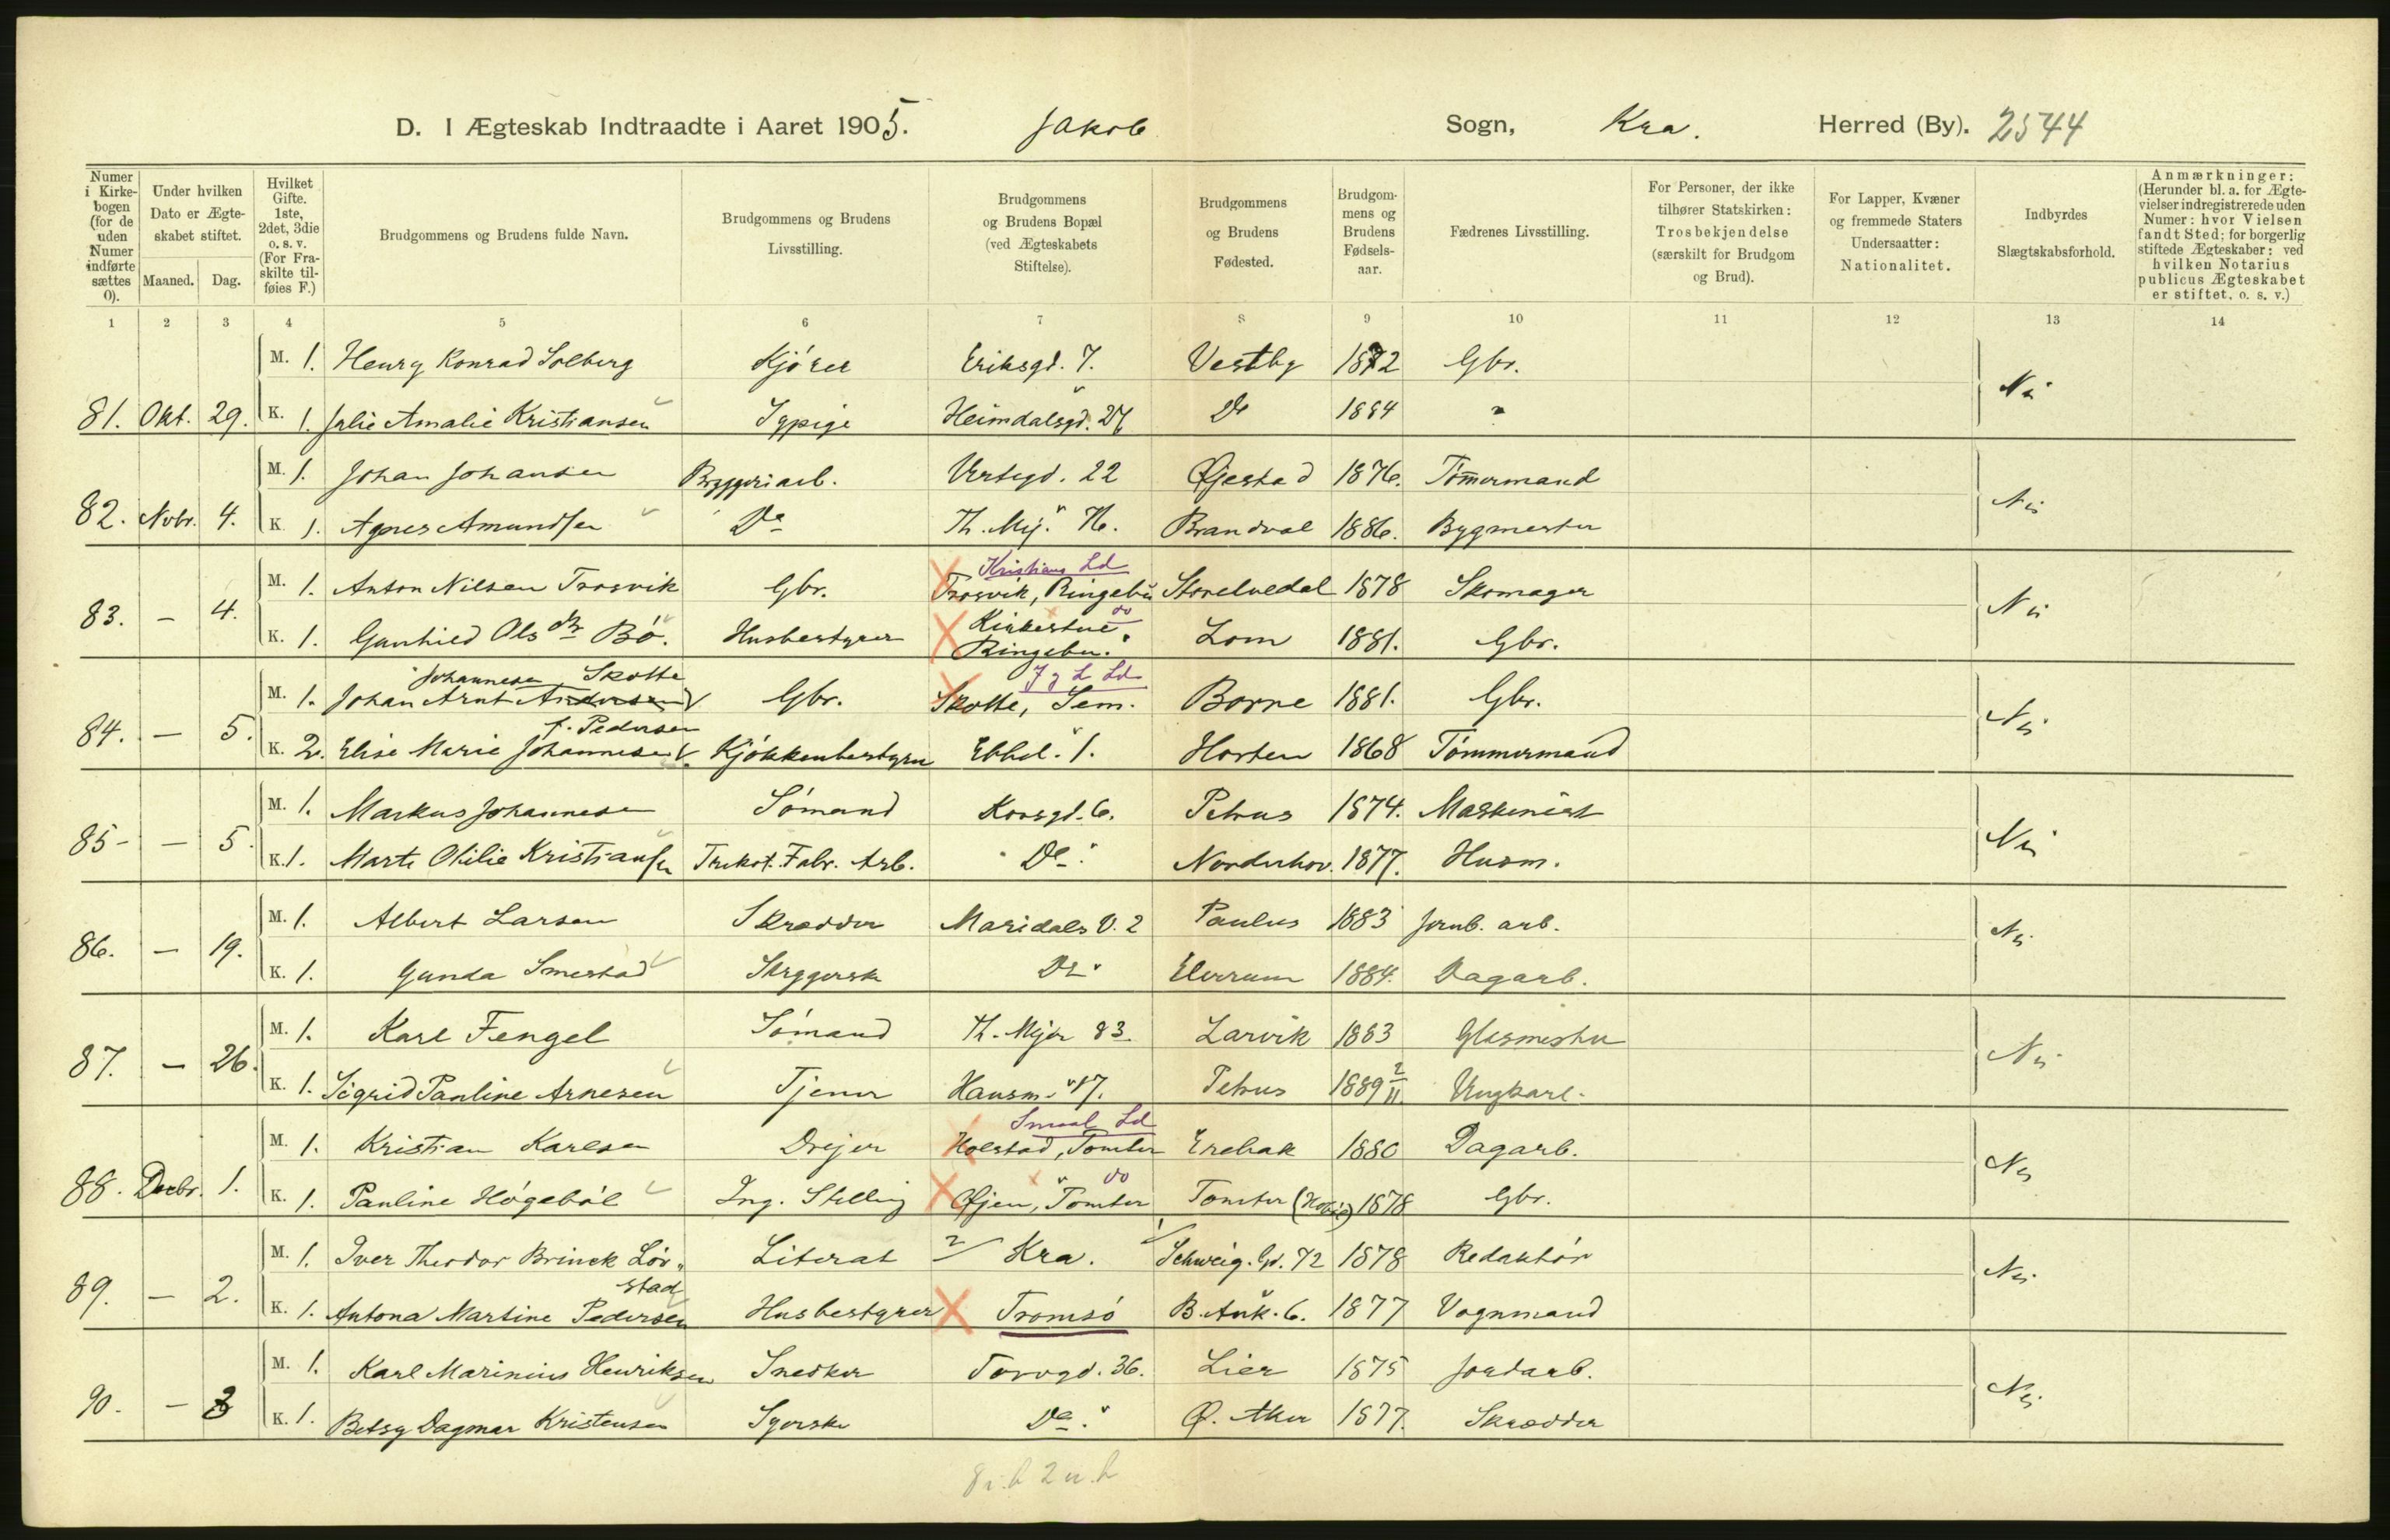 D. I Ægteskab Indtraadte i Aaret 1905. Jakob Sogn, Kra. Herred (By). 2544
Numer i Kirkebogen (for de uden Numer indførte sættes 0).
Under hvilken Dato er Ægteskabet stiftet.
Maaned. Dag.
Hvilket Gifte. 1ste, 2det, 3die o. s. v. (For Fraskilte tilføies F.)
Brudgommens og Brudens fulde Navn.
Brudgommens og Brudens Livsstilling.
Brudgommens og Brudens Bopæl (ved Ægteskabets Stiftelse).
Brudgommens og Brudens Fødested.
Brudgommens og Brudens Fødselsaar.
Fædrenes Livsstilling.
For Personer, der ikke tilhører Statskirken: Trosbekjendelse (særskilt for Brudgom og Brud).
For Lapper, Kvæner og fremmede Staters Undersaatter: Nationalitet.
Indbyrdes Slægtskabsforhold.
Anmærkninger: (Herunder bl. a. for Ægtevielser indregistrerede uden Numer: hvor Vielsen fandt Sted; for borgerlig stiftede Ægteskaber: ved hvilken Notarius publicus Ægteskabet er stiftet, o. s. v.)
1 2 3 4 5 6 7 8 9 10 11 12 13 14
M. 1. Henry Konrad Solberg Kjører Eriksgd. 7. Vestby 1872 Gbr.
81. Okt. 29. K. 1. Julie Amalie Kristiansen Sypige Heimdalsgd. Do 1884 Nei
M. 1. Johan Johansen Bryggeriarb. Vertsgd. 22 Øjestad 1876. Tømmermand
82. Novbr. 4. K. 1. Agnes Amundsen Do Th. Mej. " 76. Brandval 1886. Bygmester Nei
Kristians Ld
M. 1. Anton Nilsen Trosvik Gbr. Trosvik, Ringebu Storelvedal 1878 Skomager
83. - 4. K. 1. Gunhild Olsdtr Bø. Husbestyrer Kirkestue do Ringebu. Lom 1881. Gbr. Nei
Johannesen Skotte J g L Ld
M. 1. Johan Arnt Andersen Gbr. Skotte, Sem. Borre 1881. Gbr.
f. Pedersen
84. - 5. K. 2. Elise Marie Johannesen Kjøkkenbestyrer Ebbel. " 1. Horten 1868 Tømmermand Nei
M. 1. Markus Johannesen Sømand Korsgd. 6. Petrus 1874. Maskinist
85 - - 5. K. 1. Marte Otilie Kristiansen Trikot. Fabr. Arb. Do " Norderhov. 1877. Husm. Nei
M. 1. Albert Larsen Skrædder Maridals V. 2 Paulus 1883 Jernb. arb.
86. - 19. K. 1. Gunda Smestad Skyggerske Do " Elverum 1884. Dagarb. Nei
M. 1. Karl Fengel Sømand Th. Mejer 83. Larvik 1883 Glasmester
87. - 26. K. 1. Sigrid Pauline Arnesen Tjener Hausm. " 17. Petrus 1889 2/11 Ungkarl. Nei
Smaal Ld
M. 1. Kristian Karlsen Drejer Holstad, Tomter Enebak 1880 Dagarb.
88. Decbr. 1. K. 1. Pauline Høgebøl Ing. Stilling Øfjen, Tomter do Tomter (Hobøl) 1878 Gbr. Nei
M. 1. Iver Theodor Brinck Løv- Literat 2/ Kra. 1/ Schweig. Gd. 72 1878 Redaktør
stad
89. - 2. K. 1. Antona Martine Pedersen Husbestyrer Tromsø B. Ank. 6. 1877 Vognmand Nei
M. 1. Karl Marinius Henriksen Snedker Torvgd. 36. Lier 1875 Jordarb.
90. - 3 K. 1. Betsy Dagmar Kristensen Syerske Do " Ø. Aker 1877. Skrædder Nei
8 i. b 2 u. b